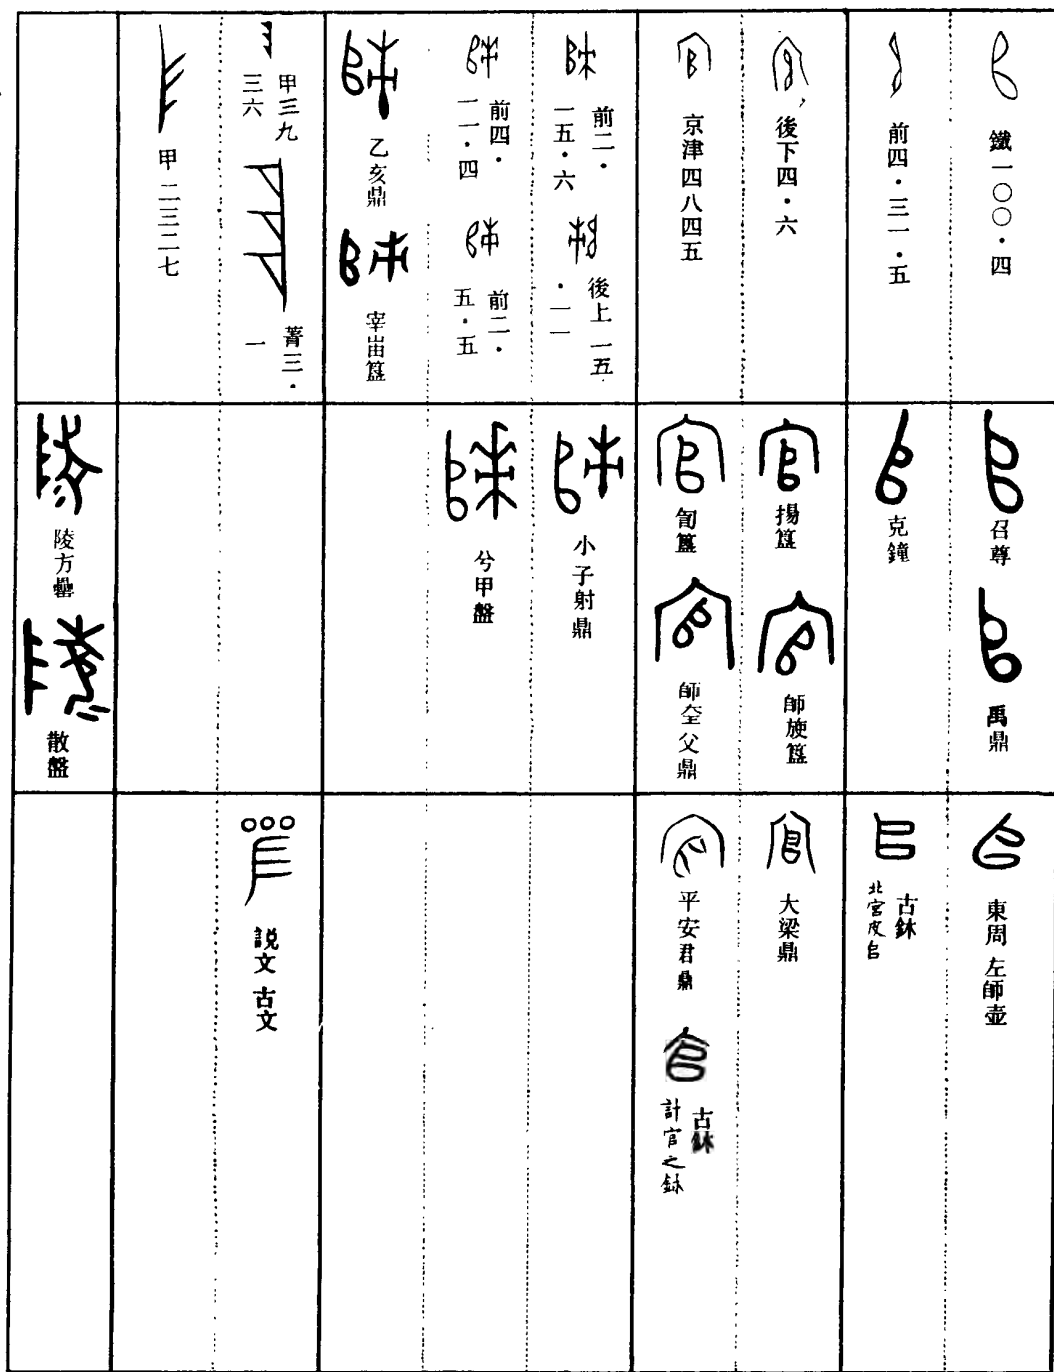 鐵一〇〇・四
前四・三一・五
後下四・六
京津四八四五
前二・
一五・六
後上一五
・一一
前四・
一一・四
前二・
五・五
乙亥鼎
宰甶簋
甲三九
三六
菁三・
一
甲二三二七
召尊
禹鼎
克鐘
揚簋
師旋簋
訇簋
師全父鼎
小子射鼎
兮甲盤
陵方罍
散盤
東周左師壺
古鉨
北宮皮𠂤
大梁鼎
平安君鼎
古鉨
計官之鉨
説文古文